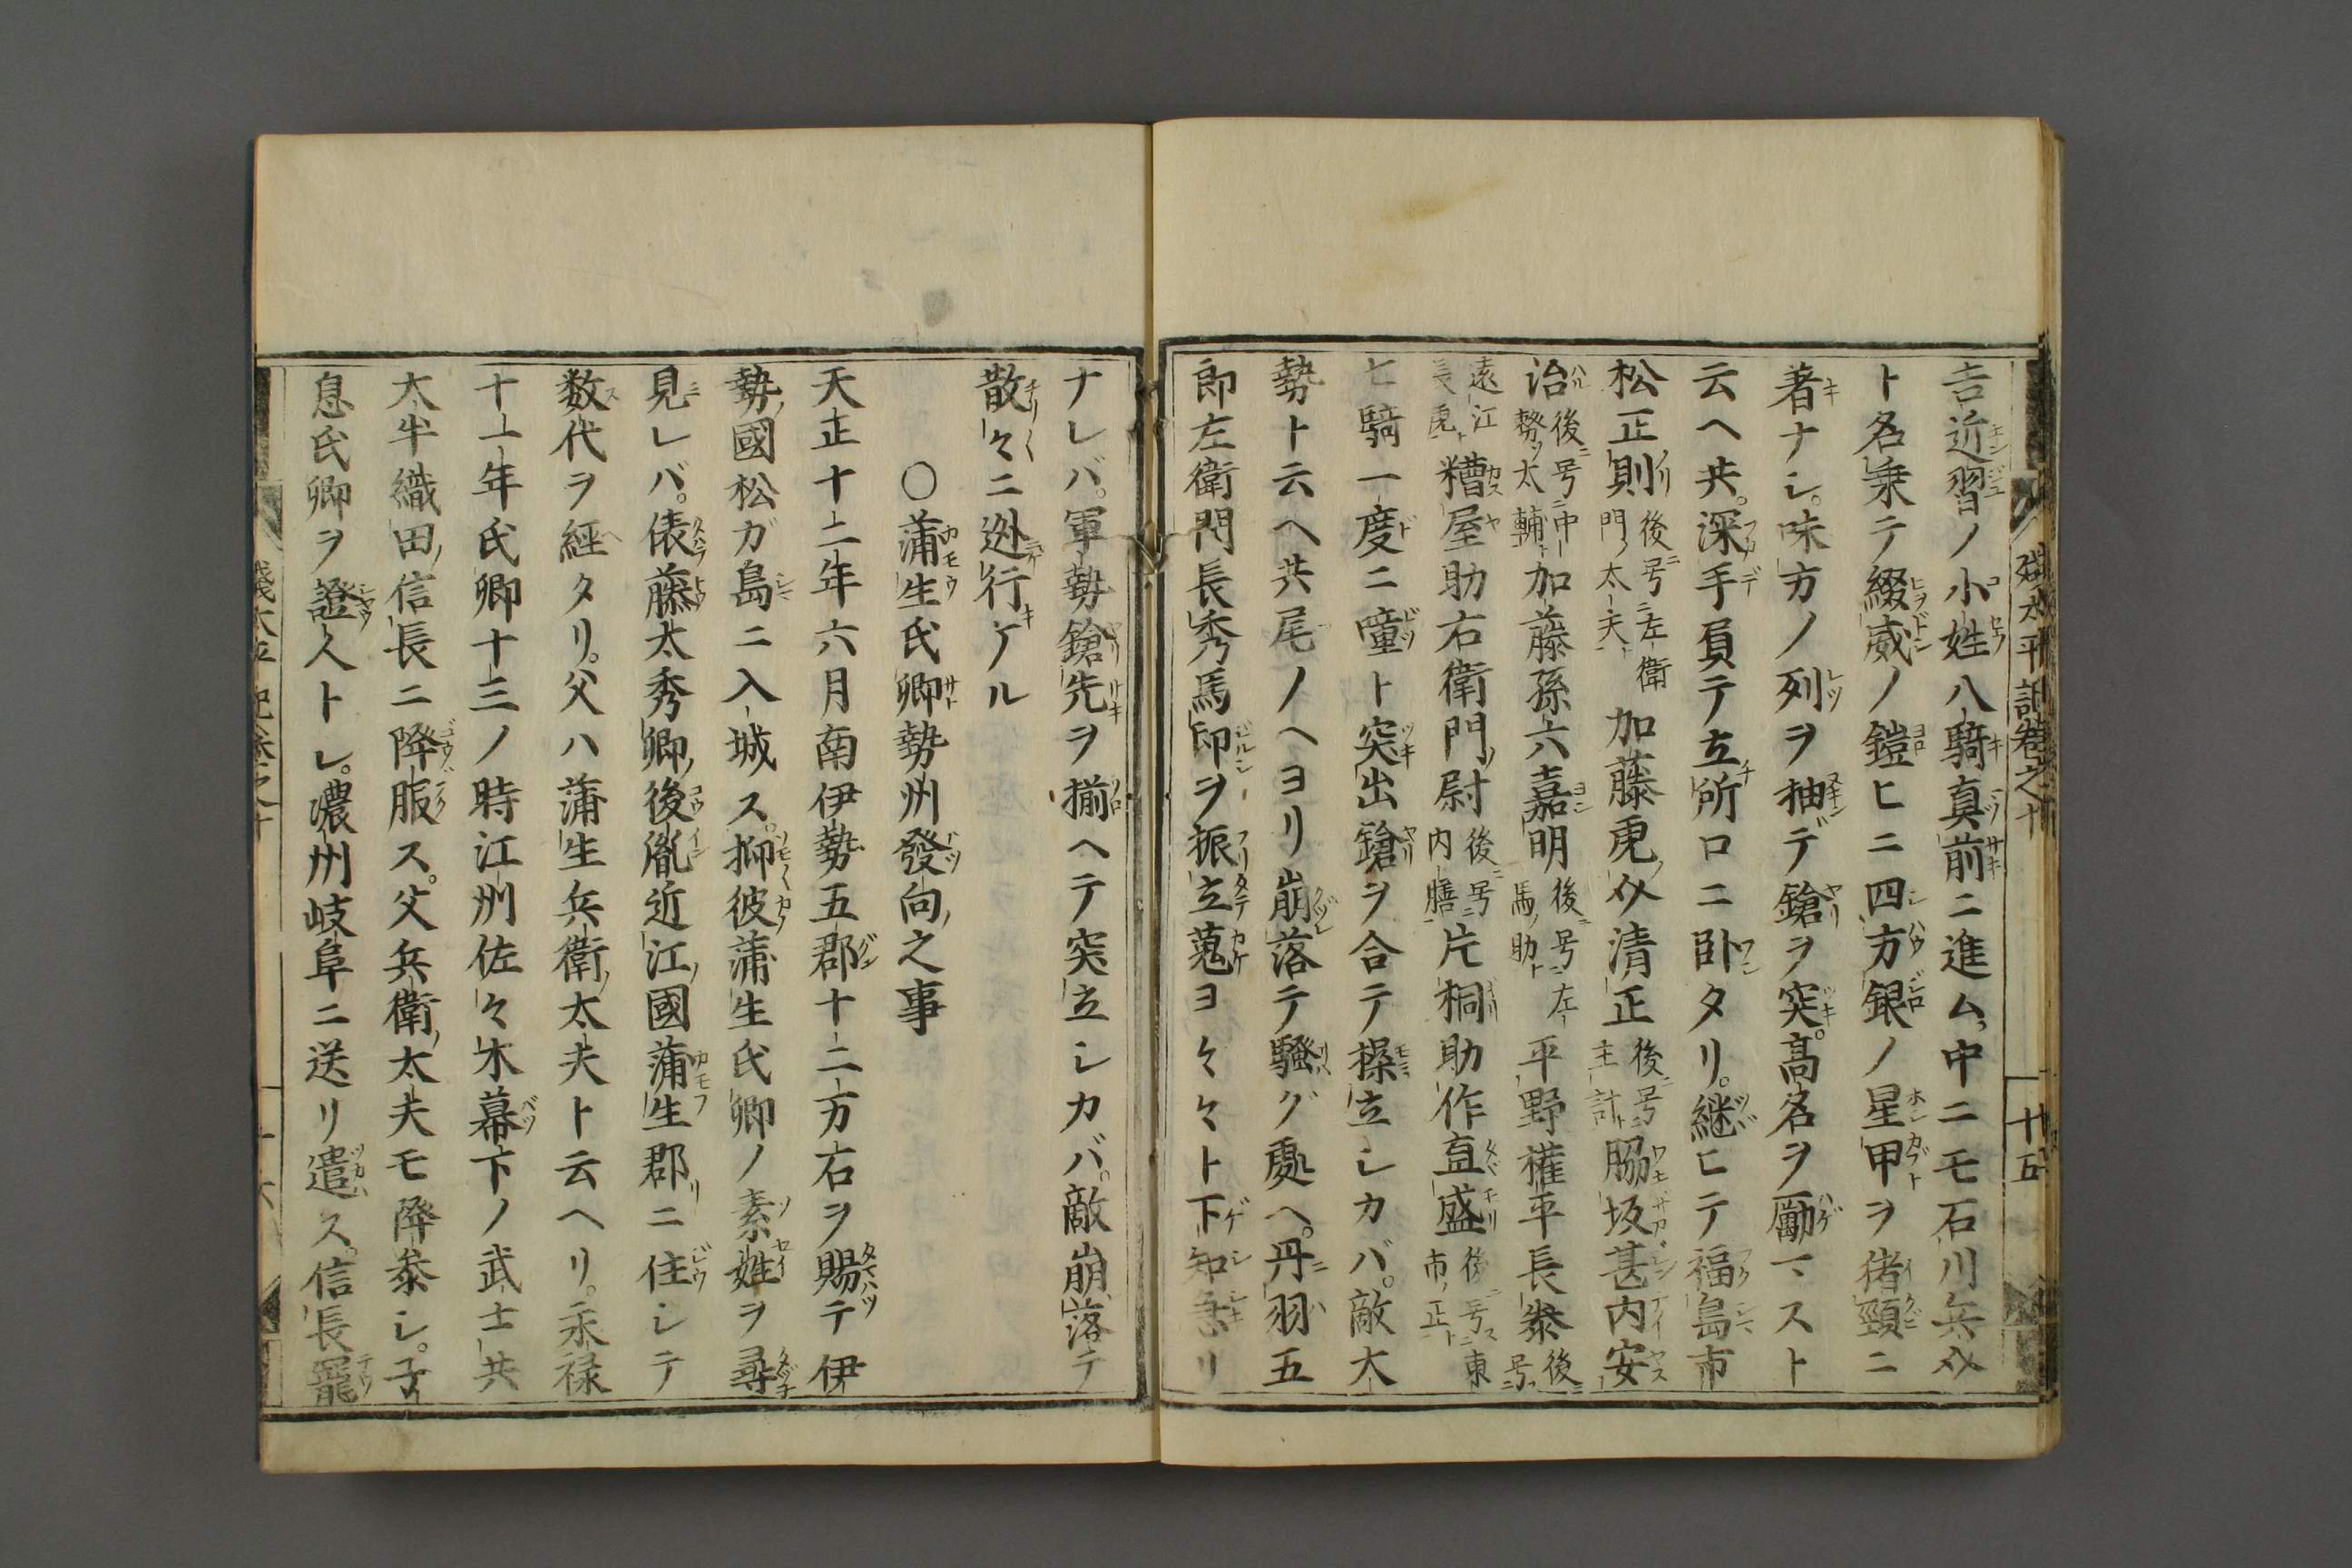 吉近習ノ小姓八騎真前ニ進ム中ニモ石川兵介
ト名乗テ綴威ノ鎧ヒニ四方銀ノ星甲ヲ猪頸ニ
著ナシ。味方ノ列ヲ抽デ鎗ヲ突。高名ヲ勵マスト
云ヘ共。深手負テ立所ロニ卧タリ。継ヒテ福島市
松正則後ニ号ニ左衛門ノ太夫ト加藤虎ノ介清正後ニ号ニ主計ト脇坂甚内安
治後ニ号ニ中務ノ太輔ト加藤孫六嘉明後ニ号ニ左馬ノ助ト平野權平長泰後ニ号ニ
遠江ノ長虎ト糟屋助右衛門ノ尉後ニ号ニ内膳ト片桐助作直盛後ニ号ス東市ノ正ト
七騎一度ニ噇ト突出鎗ヲ合テ操立シカバ。敵大
勢ト云ヘ共尾ノヘヨリ崩落テ騒グ處ヘ。丹羽五
郎左衛門長秀馬印ヲ振立蒐ヨ々々ト下知急リ
續太平記巻之十
十五
ナレバ。軍勢鎗先ヲ揃ヘテ突立シカバ。敵崩落テ
散々ニ迯行ケル
○蒲生氏卿勢州發向之事
天正十二年六月南伊勢五郡十二万石ヲ賜テ伊
勢ノ國松ガ島ニ入城ス。抑彼蒲生氏卿ノ素姓ヲ尋
見レバ。俵藤太秀卿ノ後胤近江ノ國蒲生郡ニ住シテ
数代ヲ經タリ。父ハ蒲生兵衛ノ太夫ト云ヘリ。永禄
十一年氏卿十三ノ時江州佐々木幕下ノ武士共
太半織田ノ信長ニ降服ス。父兵衛ノ太夫モ降參シ。子
息氏卿ヲ證人トシ。濃州岐阜ニ送リ遣ス。信長寵